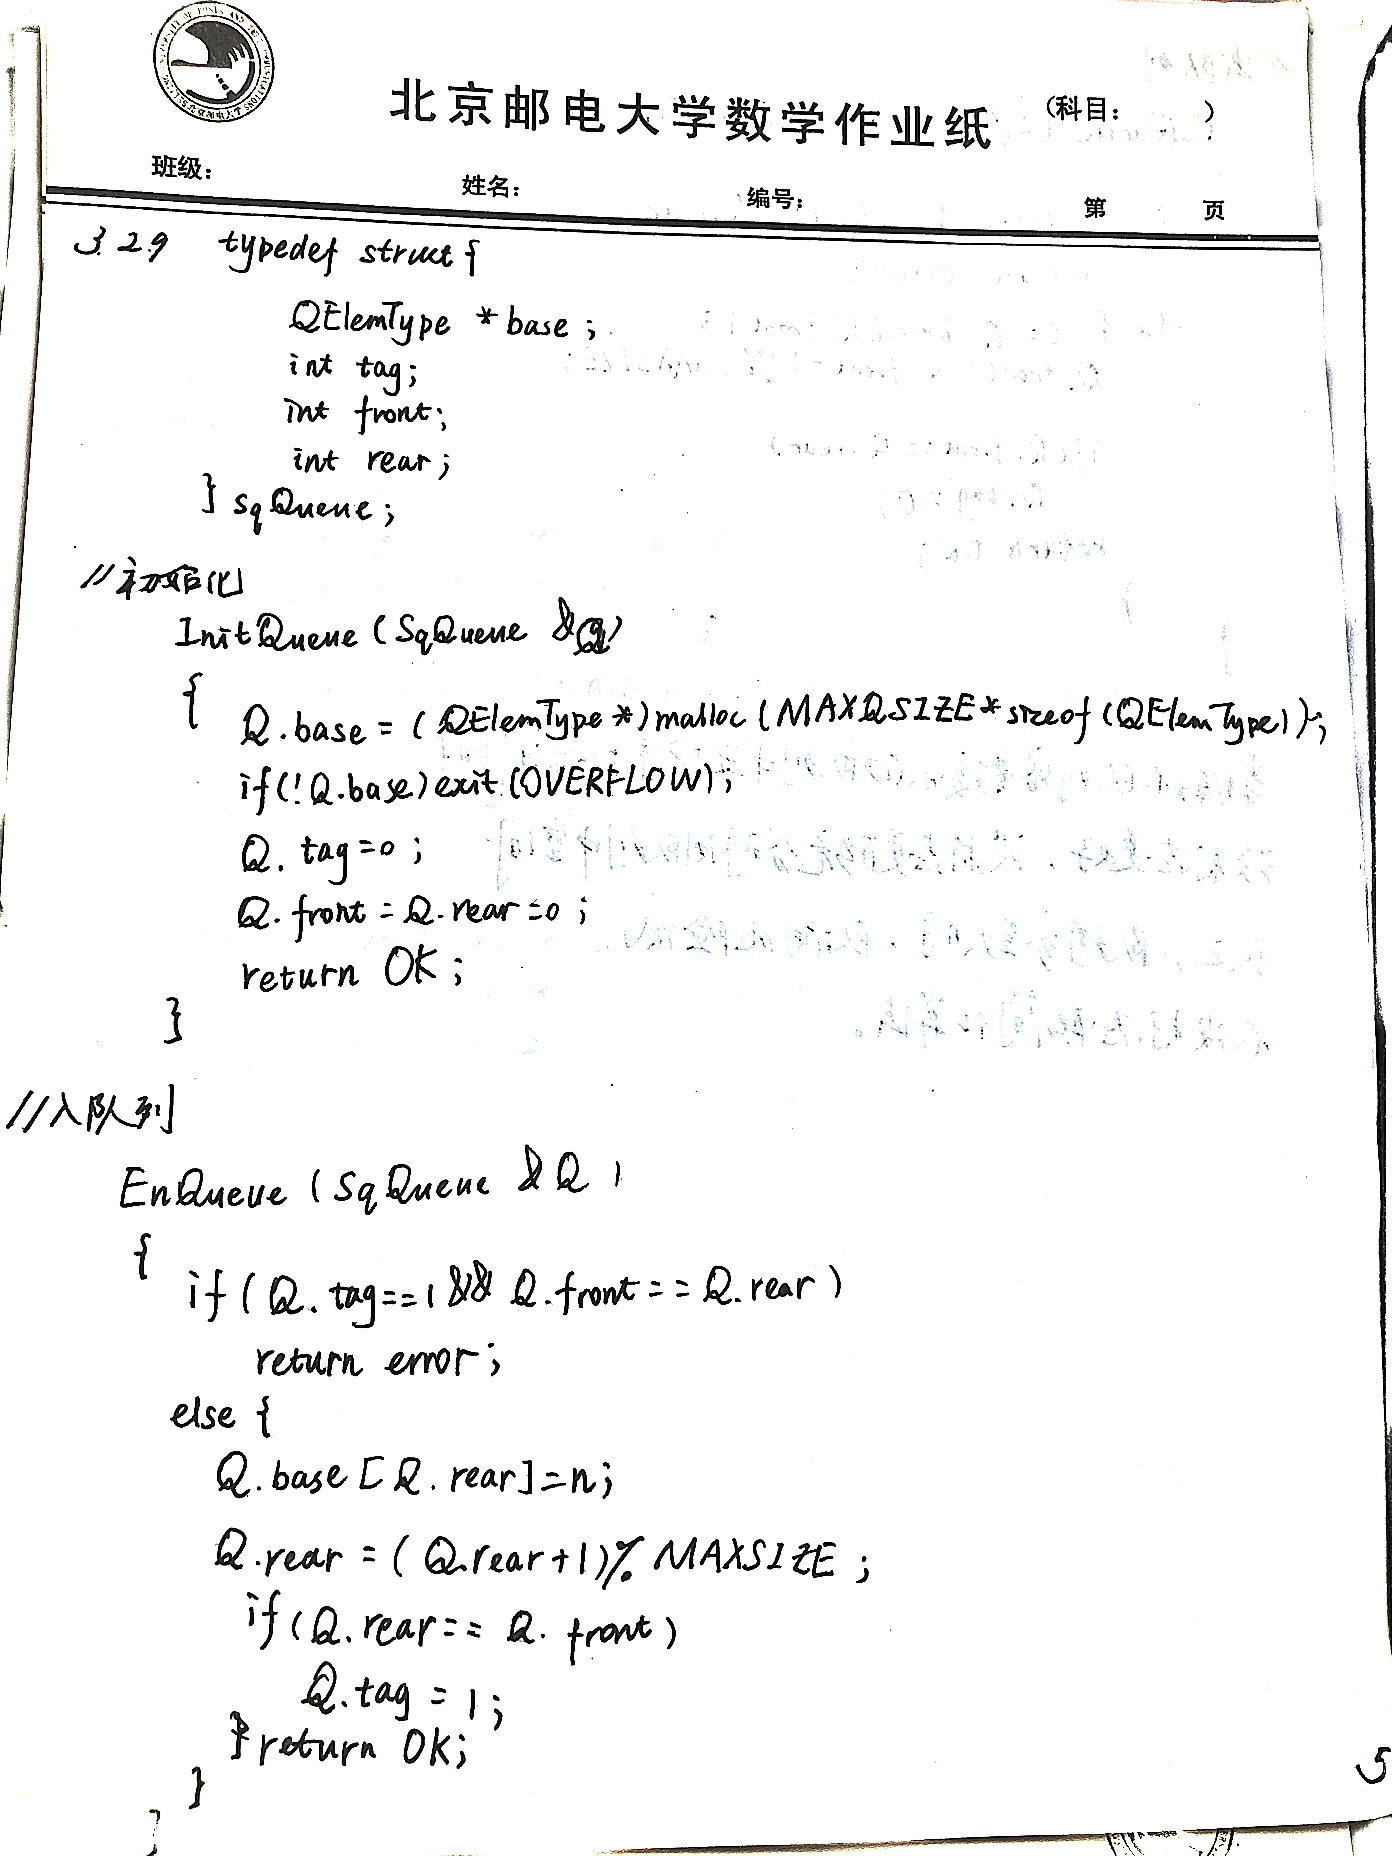 北京邮电大学数学作业纸 （科目： ）
班级： 姓名： 编号： 第 页
3.29 typedef struct{
QElemType *base;
int tag;
int front;
int rear;
} sqQueue;
//初始化
InitQueue(SqQueue &Q)
{
Q.base=(QElemType*)malloc(MAXQSIZE*sizeof(QElemType));
if(!Q.base)exit(OVERFLOW);
Q.tag=0;
Q.front=Q.rear=0;
return OK;
}
//入队列
EnQueue(SqQueue &Q)
{
if(Q.tag==1&&Q.front==Q.rear)
return error;
else{
Q.base[Q.rear]=n;
Q.rear=(Q.rear+1)%MAXSIZE;
if(Q.rear==Q.front)
Q.tag=1;
}return OK;
}
}
5